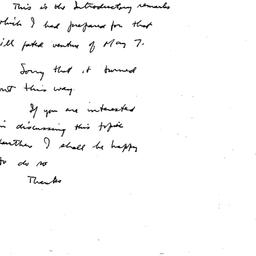 This is the Introductory remarks
which I had prepared for that
ill fated venture of May 7.
Sorry that it turned
out this way.
If you are interested
in discussing this topic
further I shall be happy
to do so
Thanks